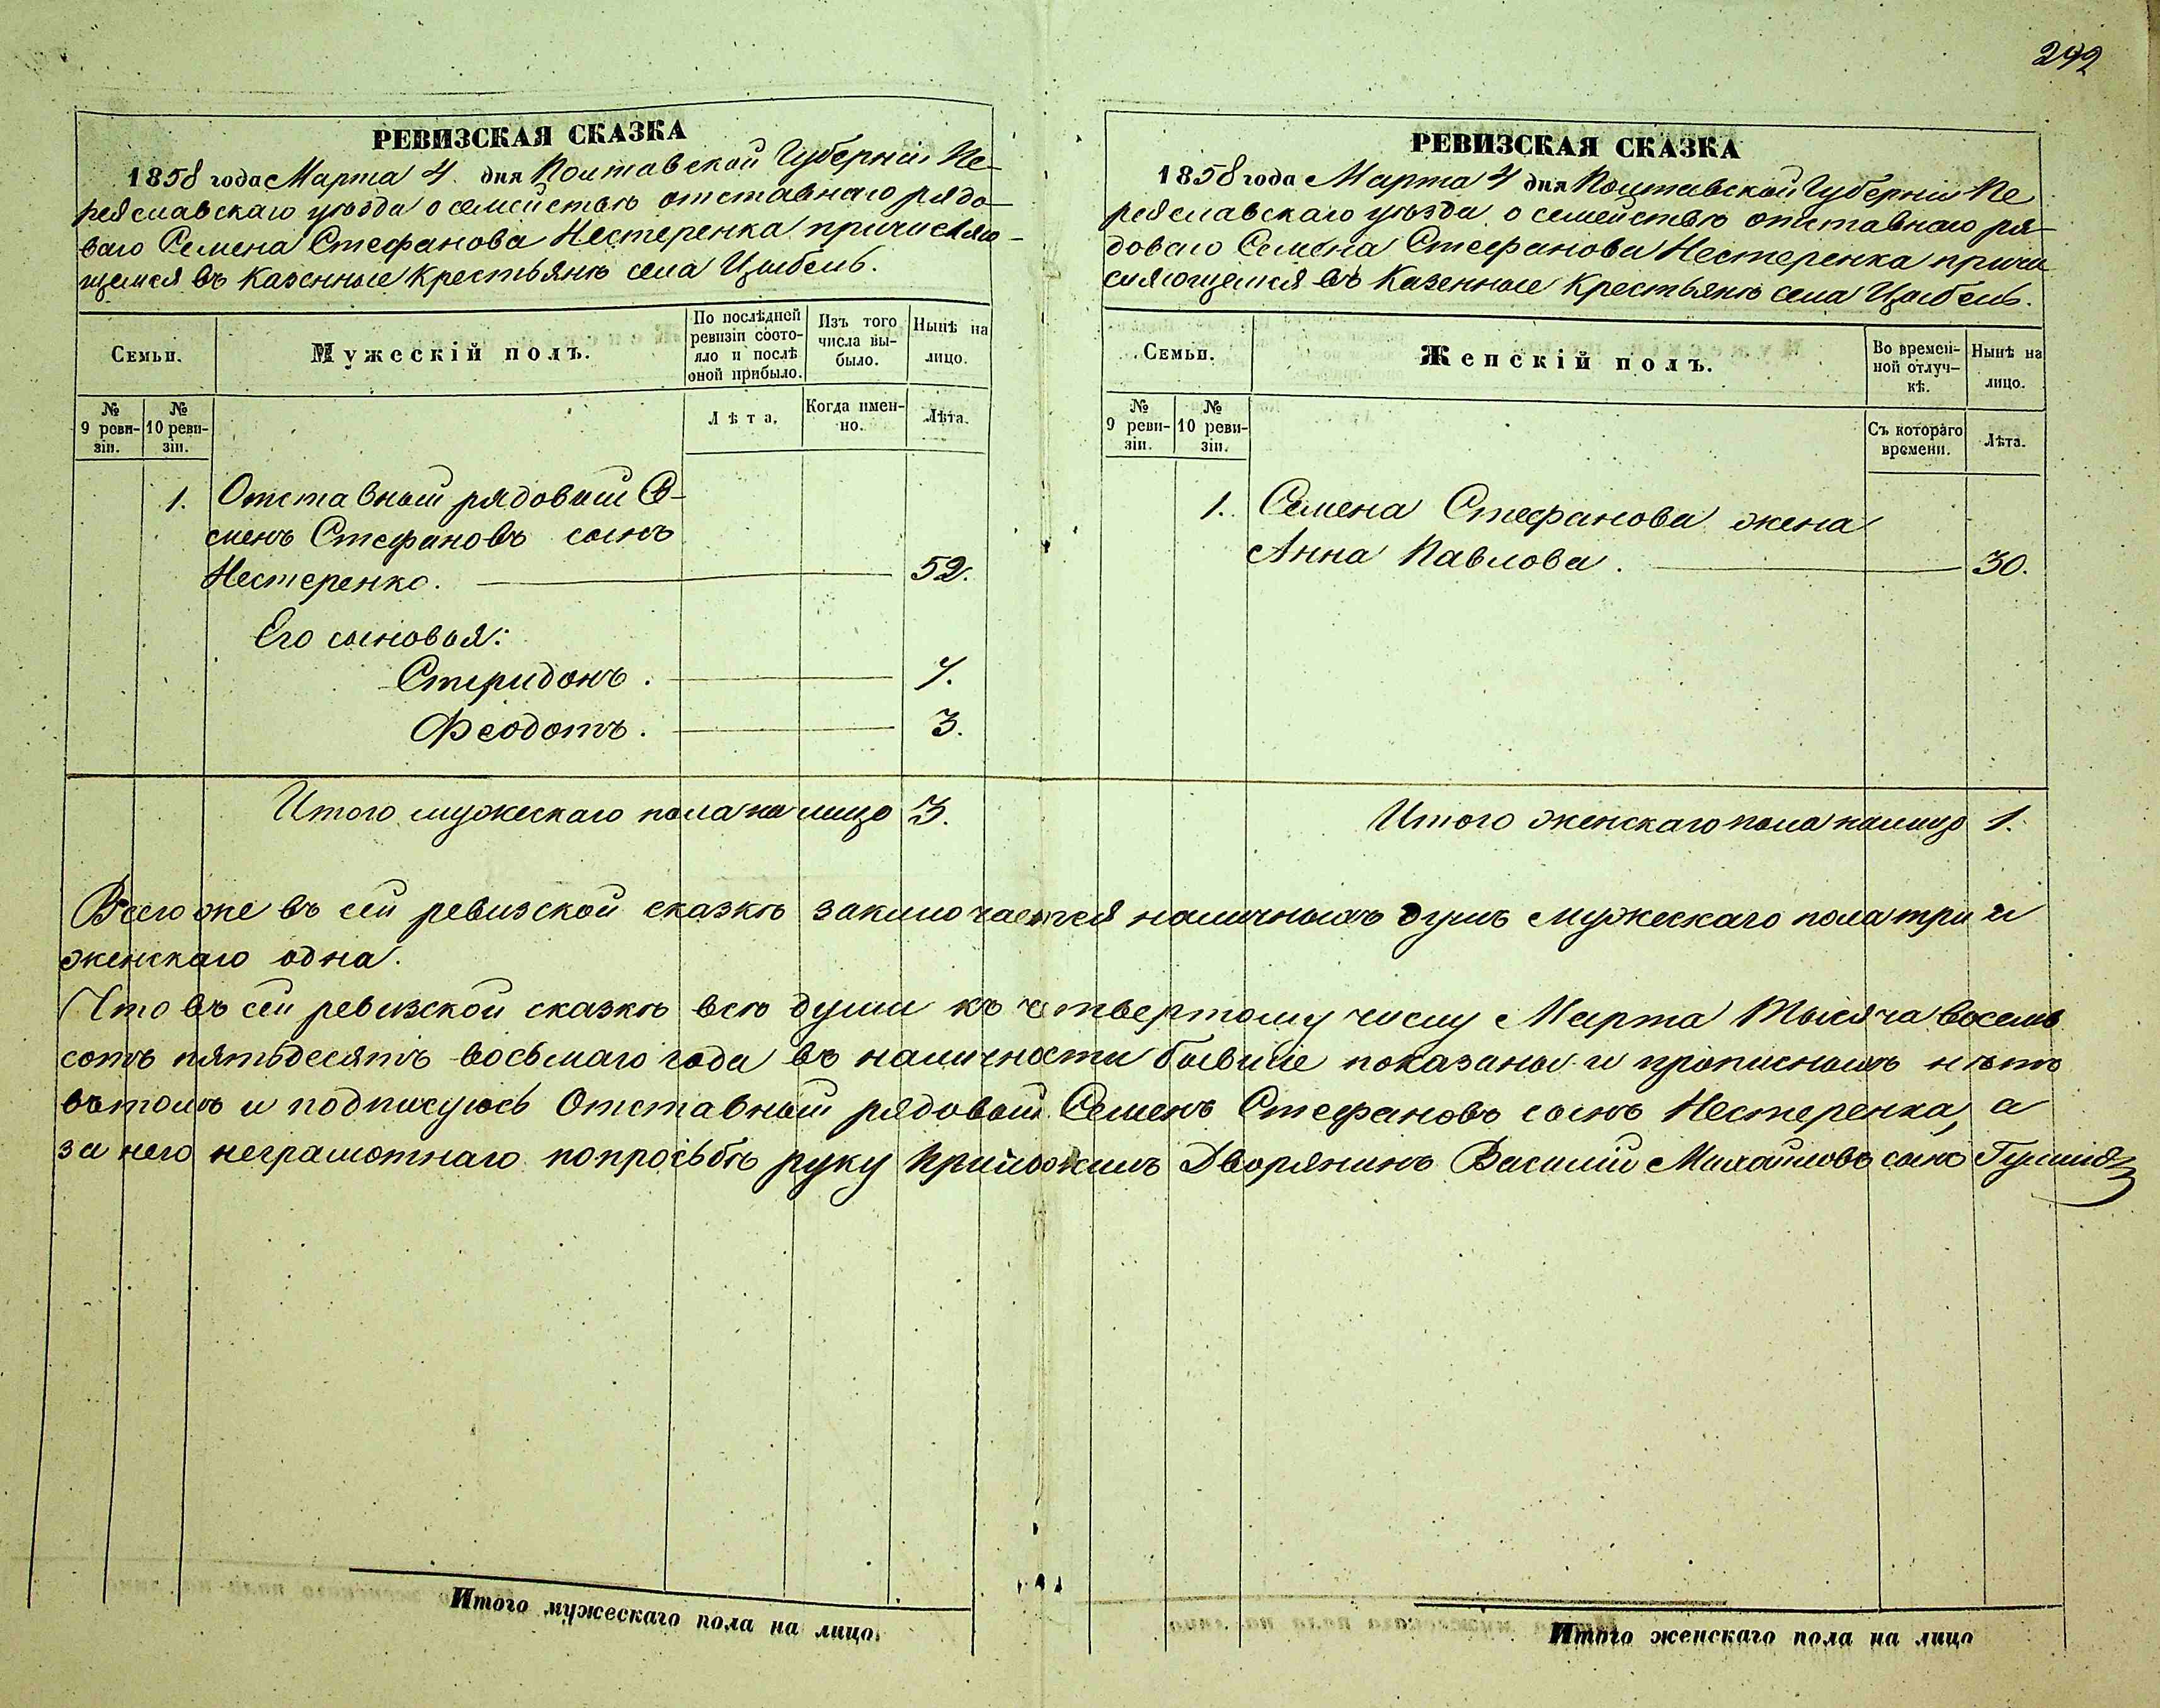 292
РЕВИЗСКАЯ СКАЗКА
1858 года Марта 4 дня Полтавской Губерніи Пе-
реяславскаго уѣзда о семействѣ отставнаго рядо-
ваго Семена Стефанова Нестеренка причисляю-
щемся въ Казенные Крестьянѣ села Цыбель.
Семьи.
Мужескій полъ.
По послѣдней
ревизіи состо-
яло и послѣ
оной прибыло.
Изъ того
числа вы-
было.
Нынѣ на
лицо.
№
9 реви-
зіи.
№
10 реви-
зіи.
Лѣта.
Когда имен-
но.
Лѣта.
1. Отставный рядовый Се-
менъ Стефановъ сынъ
Нестеренко. 52.
Его сыновья:
Спиридонъ. 7.
Феодотъ. 3.
Итого мужескаго пола на лицо 3.
РЕВИЗСКАЯ СКАЗКА
1858 года Марта 4 дня Полтавской Губерніи Пе
реяславскаго уѣзда о семействѣ отставнаго ря-
доваго Семена Стефанова Нестеренка причи
сляющемся въ Казенные Крестьянѣ села Цыбель.
Семьи.
Женскій полъ.
Во времен-
ной отлуч-
кѣ.
Нынѣ на
лицо.
№
9 реви-
зіи.
№
10 реви-
зіи.
Съ котораго
времени.
Лѣта.
1. Семена Стефанова жена
Анна Павлова. 30.
Итого женскаго пола налицо 1.
Всего же въ сей ревизской сказкѣ заключается наличныхъ душъ мужескаго пола три и
женскаго одна.
Что въ сей ревизской сказкѣ всѣ души къ четвертому числу Марта Тысяча восемь
сотъ пятьдесятъ восьмаго года въ наличности бывшіе показаны и прописныхъ нѣтъ
въ томъ и подписуюсь Отставный рядовый Семенъ Стефановъ сынъ Нестеренка, а
за него неграмотнаго по просьбѣ руку приложилъ Дворянинъ Василій Михайловъ сынъ
Итого мужескаго пола на лицо
Итого женскаго пола на лицо